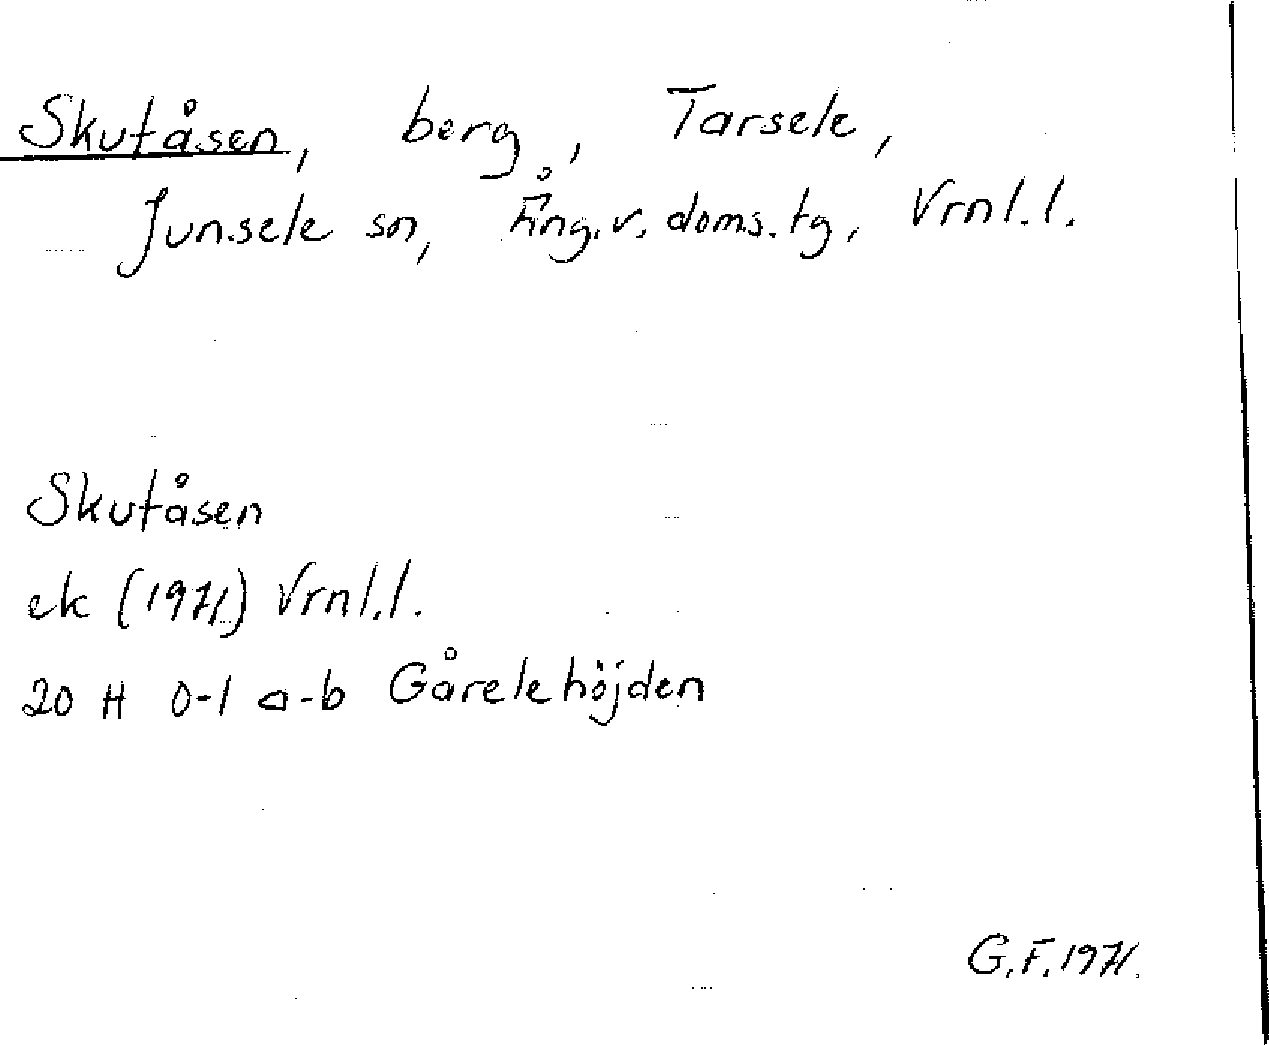 Skutåsen, berg, Tarsele,
Junsele sn, Ång.v. doms.tg, Vrnl.l.
Skutåsen
ek (1971) Vrnl.l.
20 H 0-1 a-b Gårelehöjden
G.F. 1971.